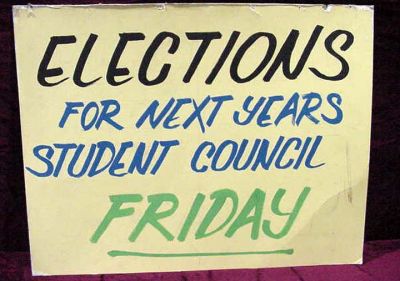 ELECTIONS
FOR NEXT YEARS
STUDENT COUNCIL
FRIDAY